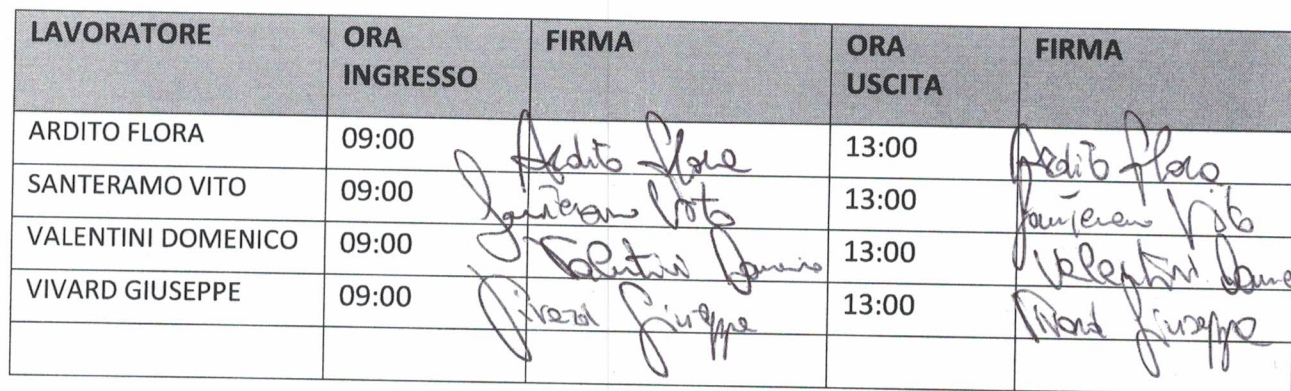 LAVORATORE ORA INGRESSO FIRMA ORA USCITA FIRMA
ARDITO FLORA 09:00 Ardito Flora 13:00 Ardito Flora
SANTERAMO VITO 09:00 Santeramo Vito 13:00 Santeramo Vito
VALENTINI DOMENICO 09:00 Valentini Domenico 13:00 Valentini Dome
VIVARD GIUSEPPE 09:00 Vivard Giuseppe 13:00 Vivard Giuseppe